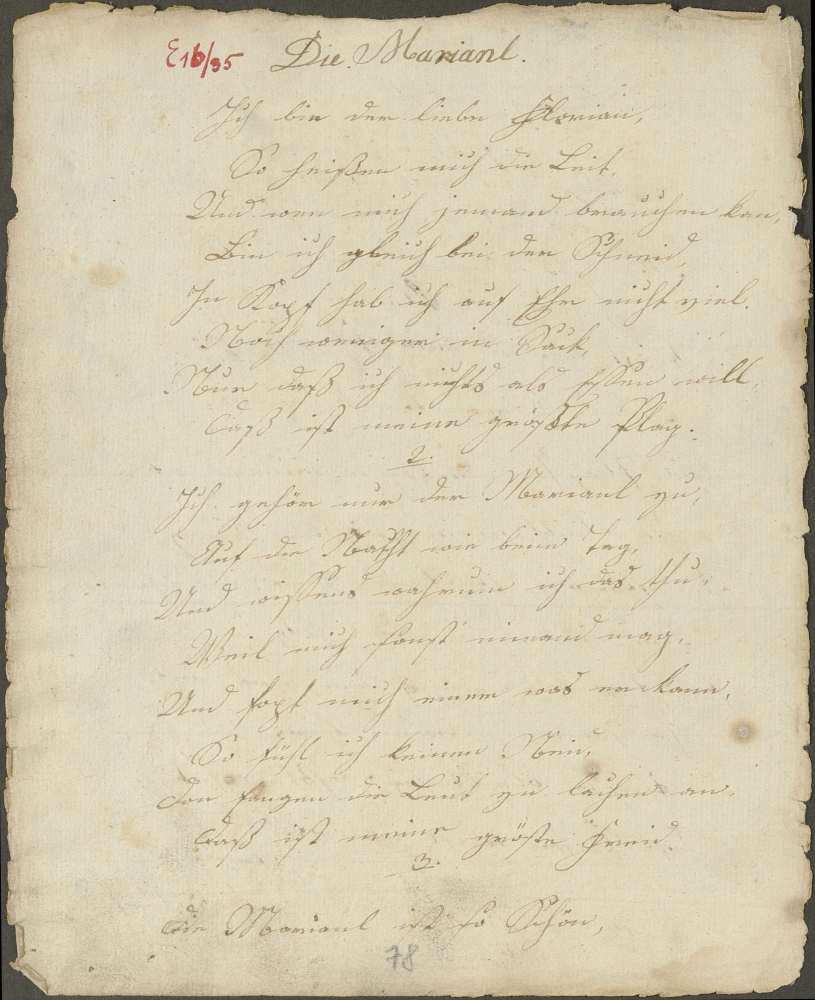 E16/35 Die Marianl.
Ich bin der liebe Florian,
So heißen mich die Leit,
Und wen mich jemand brauchen kan,
Bin ich gleich bei der Schneid,
In Kopf hab ich auf Ehr nicht viel.
Noch weniger in Sack,
Nur daß ich nichts als Essen will,
Daß ist meine größte Plag.
2.
Ich gehör nur der Marianl zu,
Auf die Nacht wie beim Tag,
Und wissens wahrum ich das thu,
Weil mich sonst nimand mag,
Und fopt mich einer was er kann,
So fühl ich keinen Neid,
Don fangen die Leut zu lachen an,
Daß ist meine gröste Freid.
3.
Die Marianl ist so Schön,
78